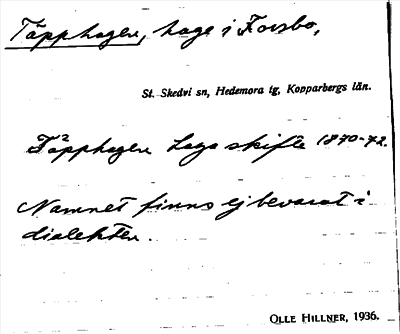 Täpphagen, hage i Forsbo,
St. Skedvi sn, Hedemora tg, Kopparbergs län.
Täpphagen Laga skifte 1870-72.
Namnet finns ej bevarat i
dialekten.
OLLE HILLNER, 1936.